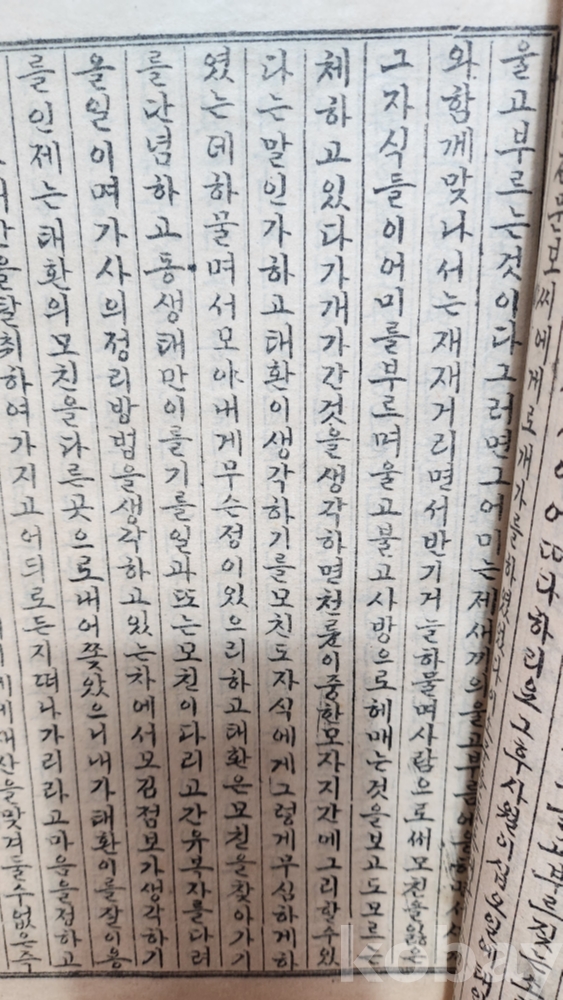 울고부르는것이다그러면그어미는제새끼의울고부름
와함께맞나서는재재거리면서반기거늘하물며사람으로써모친을잃은
그자식들이어미를부르며울고불고사방으로헤매는것을보고도모르는
체하고있다가개가간것을생각하면천륜이중한모자지간에그리할수있
다는말인가하고태환이생각하기를모친도자식에게그렇게무심하게하
였는데하물며서모야내게무슨정이있으리하고태환은모친을찾아가기
를단념하고동생태만이를기를일과또는모친이다리고간유복자를다려
올일이며가사의정리방법을생각하고있는차에서모김점보가생각하기
를인제는태환의모친을다른곳으로내어쫓았으니내가태환이를잘이용
산을탈취하여가지고어듸로든지떠나가리라고마음을정하고
산을맞겨둘수없은즉
kobay